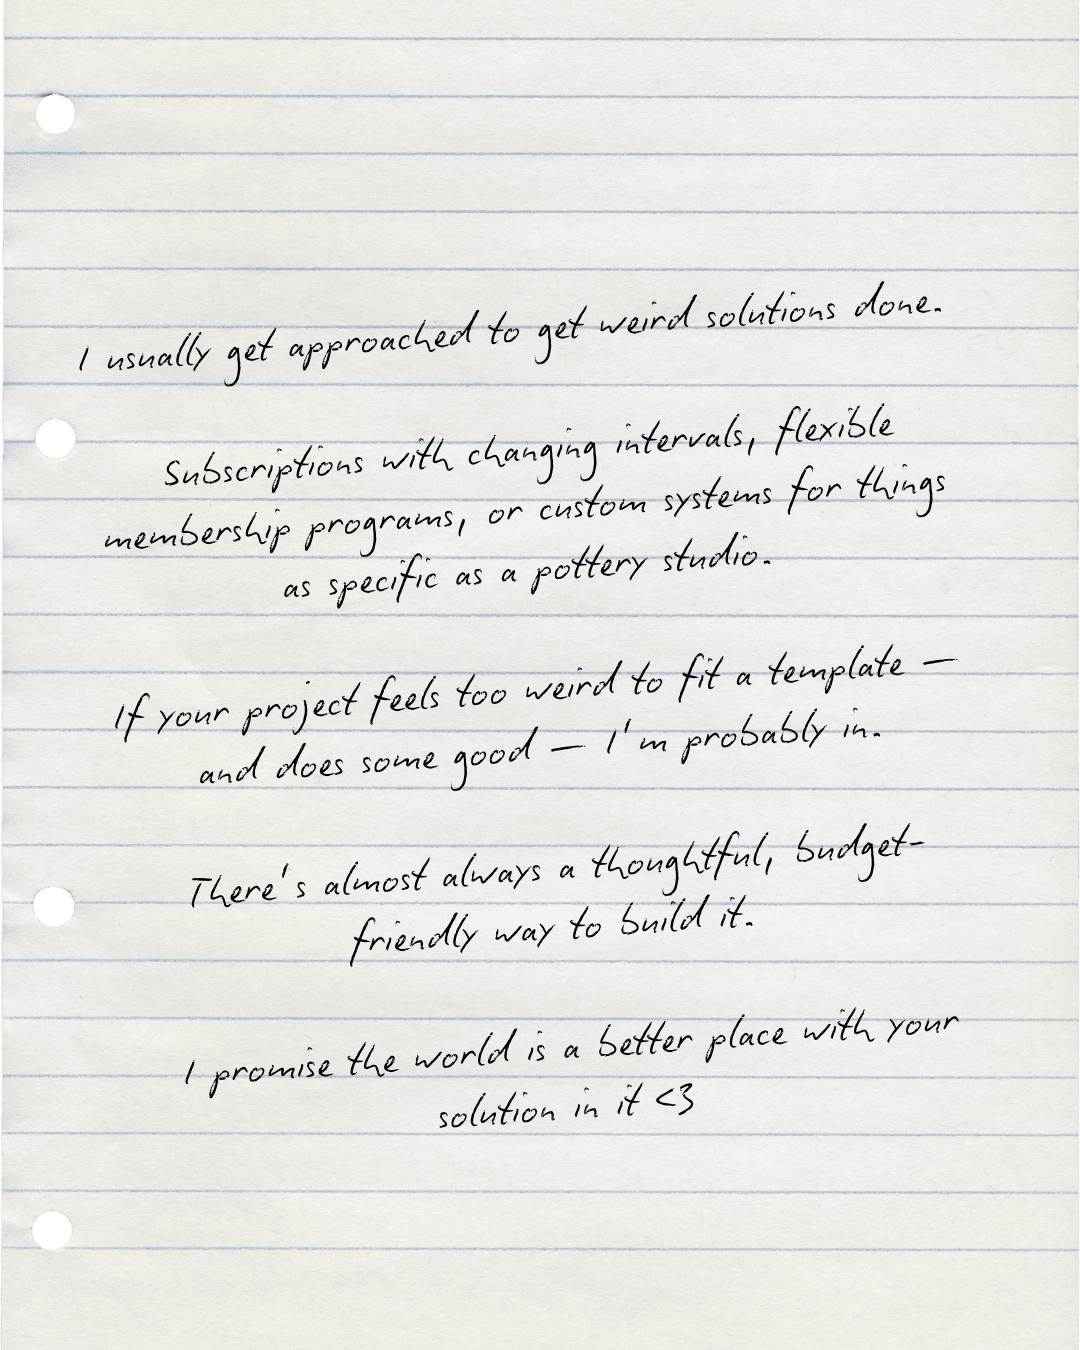 I usually get approached to get weird solutions done.
Subscriptions with changing intervals, flexible
membership programs, or custom systems for things
as specific as a pottery studio.
If your project feels too weird to fit a template —
and does some good — I'm probably in.
There's almost always a thoughtful, budget-
friendly way to build it.
I promise the world is a better place with your
solution in it <3